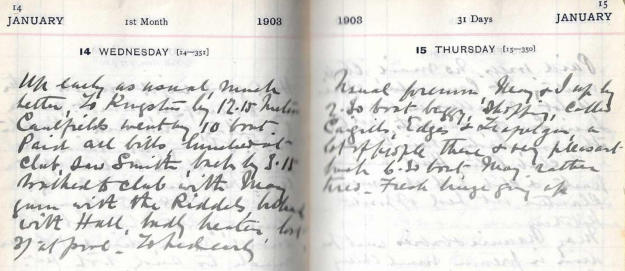 14
JANUARY
1st Month
1903
14 WEDNESDAY [14—351]
Up early as usual, much
better, To Kingston by 12.15
Caulfields went by 10 boat.
Paid all bills, lunched at
club, saw Smith, back by 3.15
Walked to club with May
with the Riddels
with Hall, badly beaten, lost
at pool. To bed early
1903
31 Days
15
JANUARY
15 THURSDAY [15—350]
Usual forenoon May & I up by
2.30 boat buggy, shopping, called
Cargills, Edges & a
lot of people there & very pleasant
back 6.30 boat May rather
tired. Fresh up